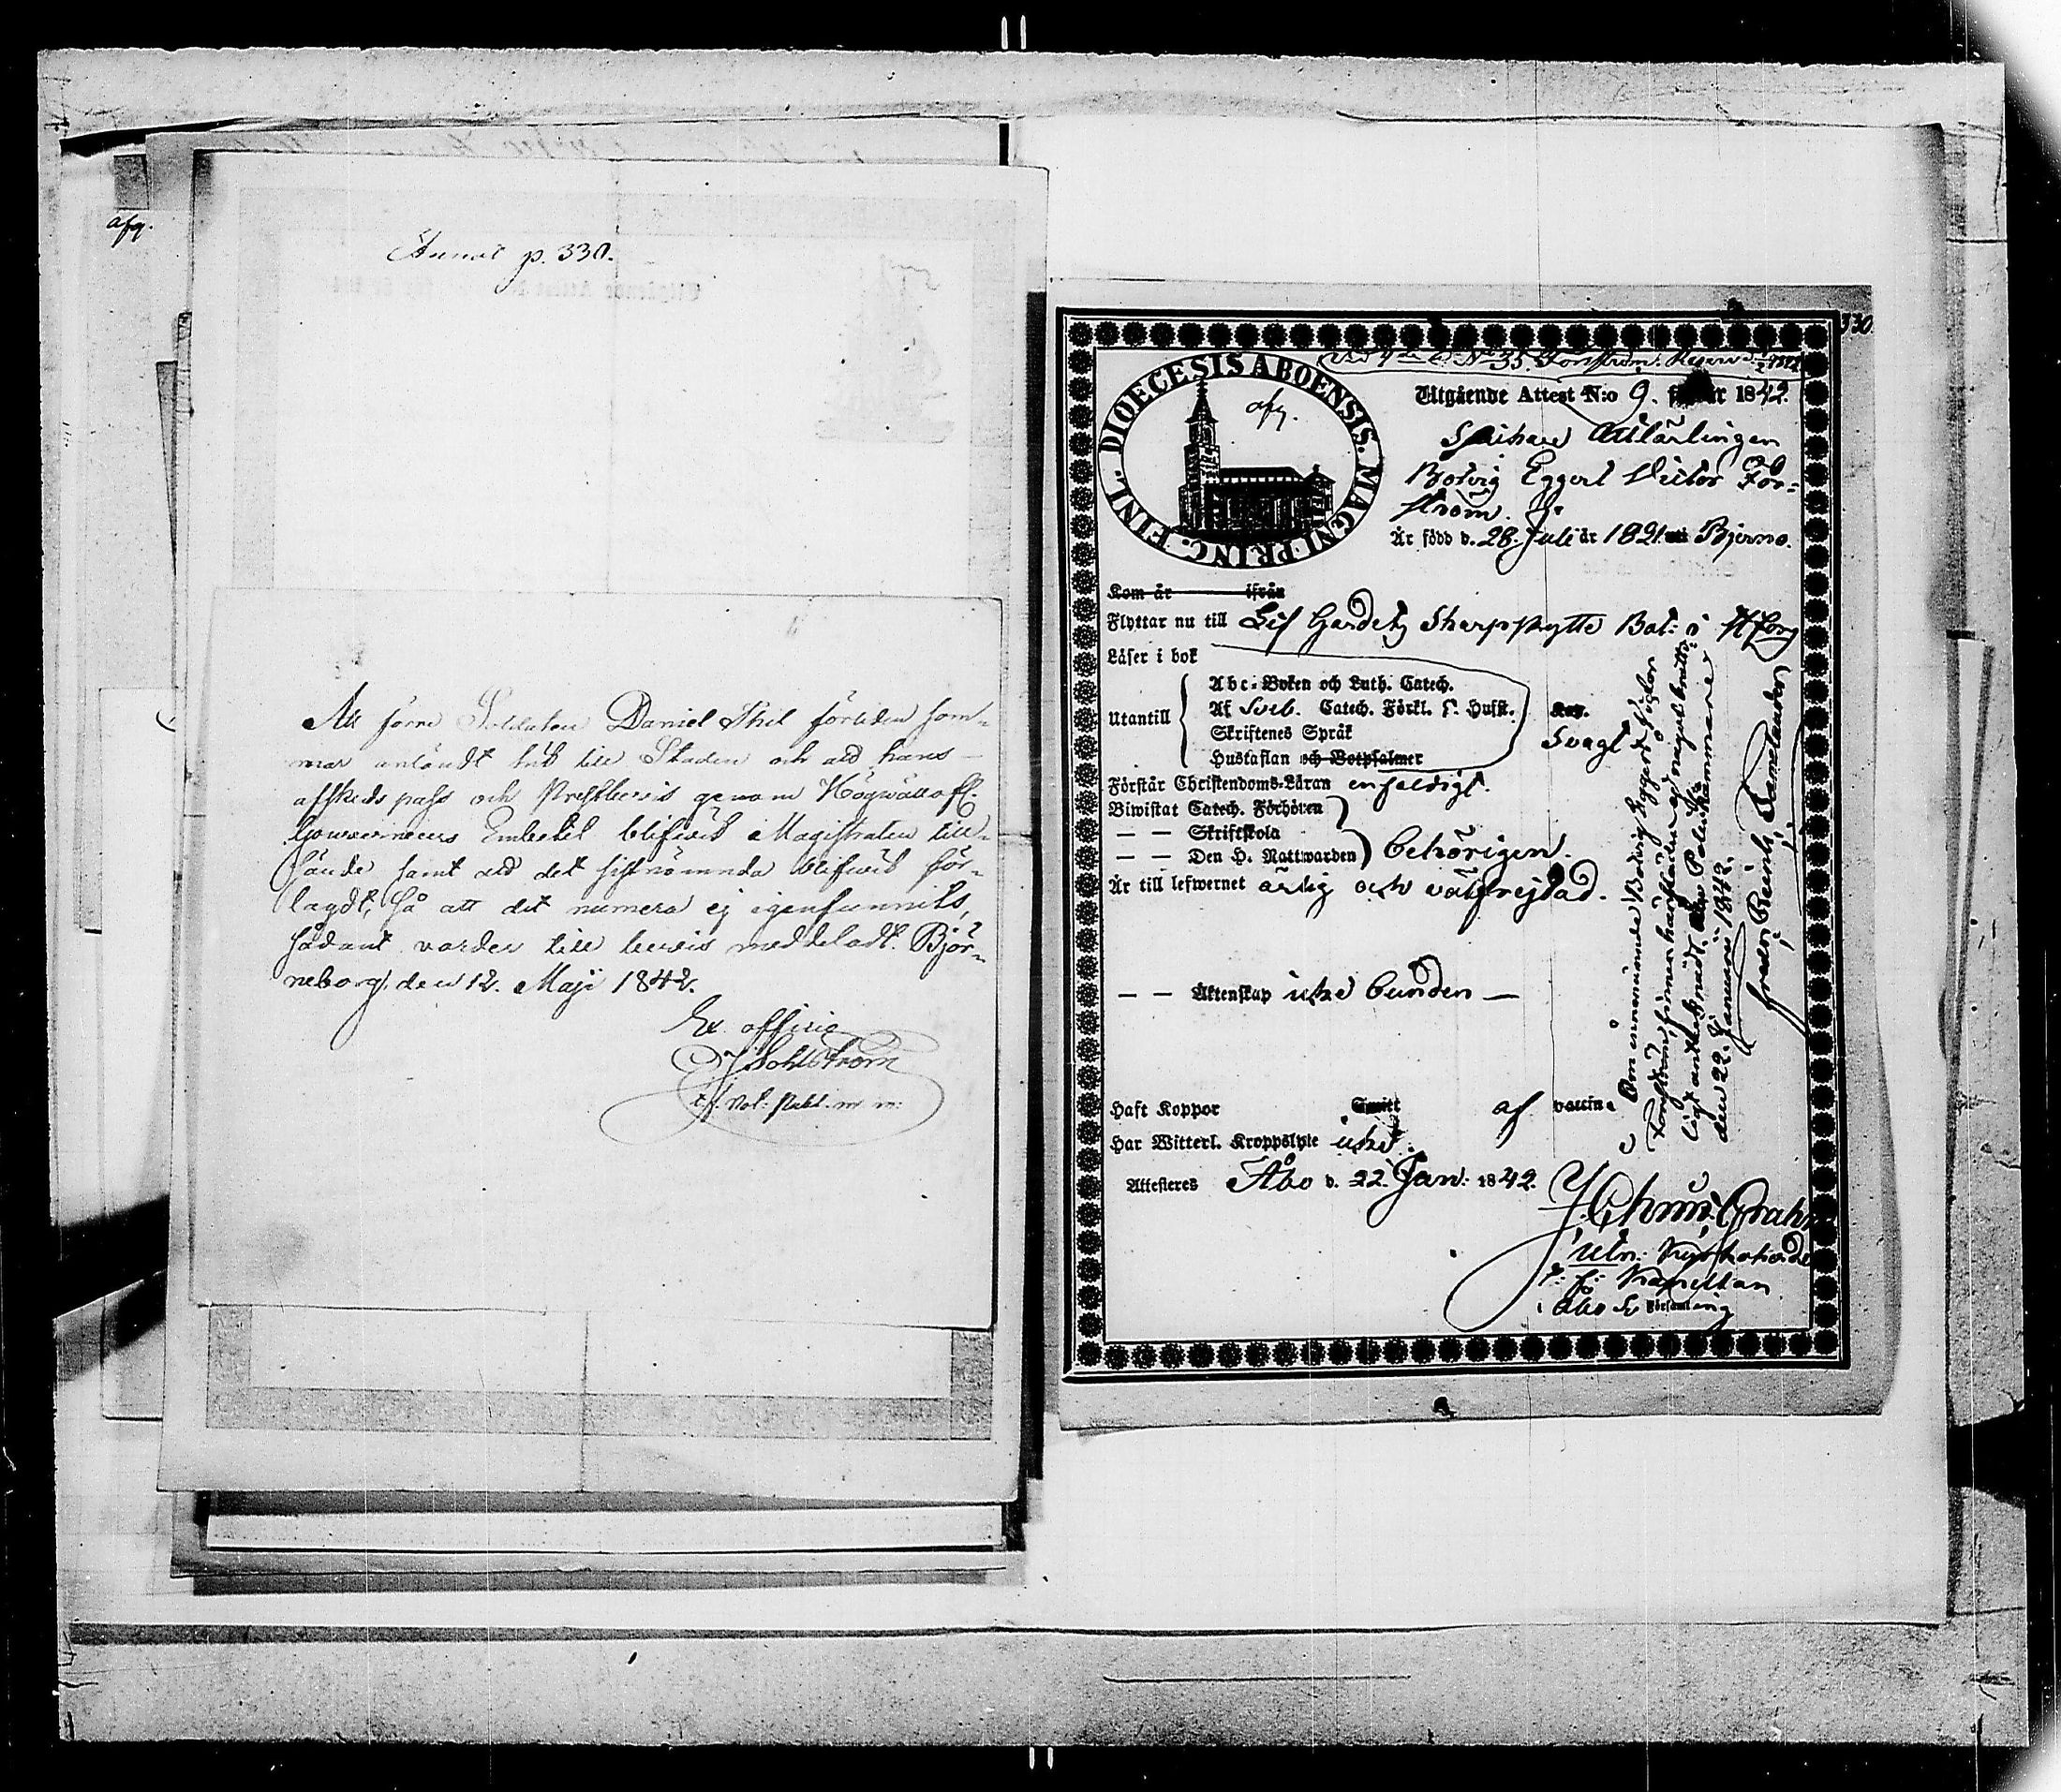 afg.
Annot p. 330.
Att förre Soldaten Daniel Thil förliden som-
mar anländt hit till Staden och att hans
afskeds pass och Prestbevis genom Högvällofl.
Gouverneurs Embetet blifvit Magistraten till-
sände samt att det sistnämnda blifvit för-
lagdt, så att det numera ej igenfunnits,
sådant varder till bevis meddeladt. Björ-
neborg, den 12. Maji 1842.
Ex officio
t.f. Not: Publ. m m:
330
N:o 35. Forsström. Reserv
DIOECESIS ABOENSIS. MAGNI PRINC. FINL.
afg.
Utgående Attest N:o 9. för år 1842.
Botvig Eggert Victor For-
ström.
Är född d. 28. Juli år 1821. uti Bjerno.
Kom år ifrån
Flyttar nu till Lif Gardets Sharpskytte Bat: i H:fors
Läser i bok
Utantill
Abc-Boken och Luth. Catech.
Af Sveb. Catech. Förkl. S. Husst.
Skriftenes Språk
Hustaflan och Botpsalmer
Svagt
Förstår Christendoms-Läran enfaldigt.
Biwistat Catech. Förhören
— — Skriftskola
— — Den H. Nattwarden
behörigen.
Är till lefwernet ärlig och välfrejdad.
— — Äktenskap icke bunden —
Haft Koppor af vaccin.
Har Witterl. Kroppslyte icke.
Attesteras Åbo d. 22. Jan: 1842.
J. Chrns. Grahn
t: f: Kapellan
i Åbo Sv Församling
Om innanämnde Botvig Eggert Victor
Forsström finnes härstädes ej något brotts-
ligt antecknadt. Åbo Poliskammare
den 22. Januarii 1842.